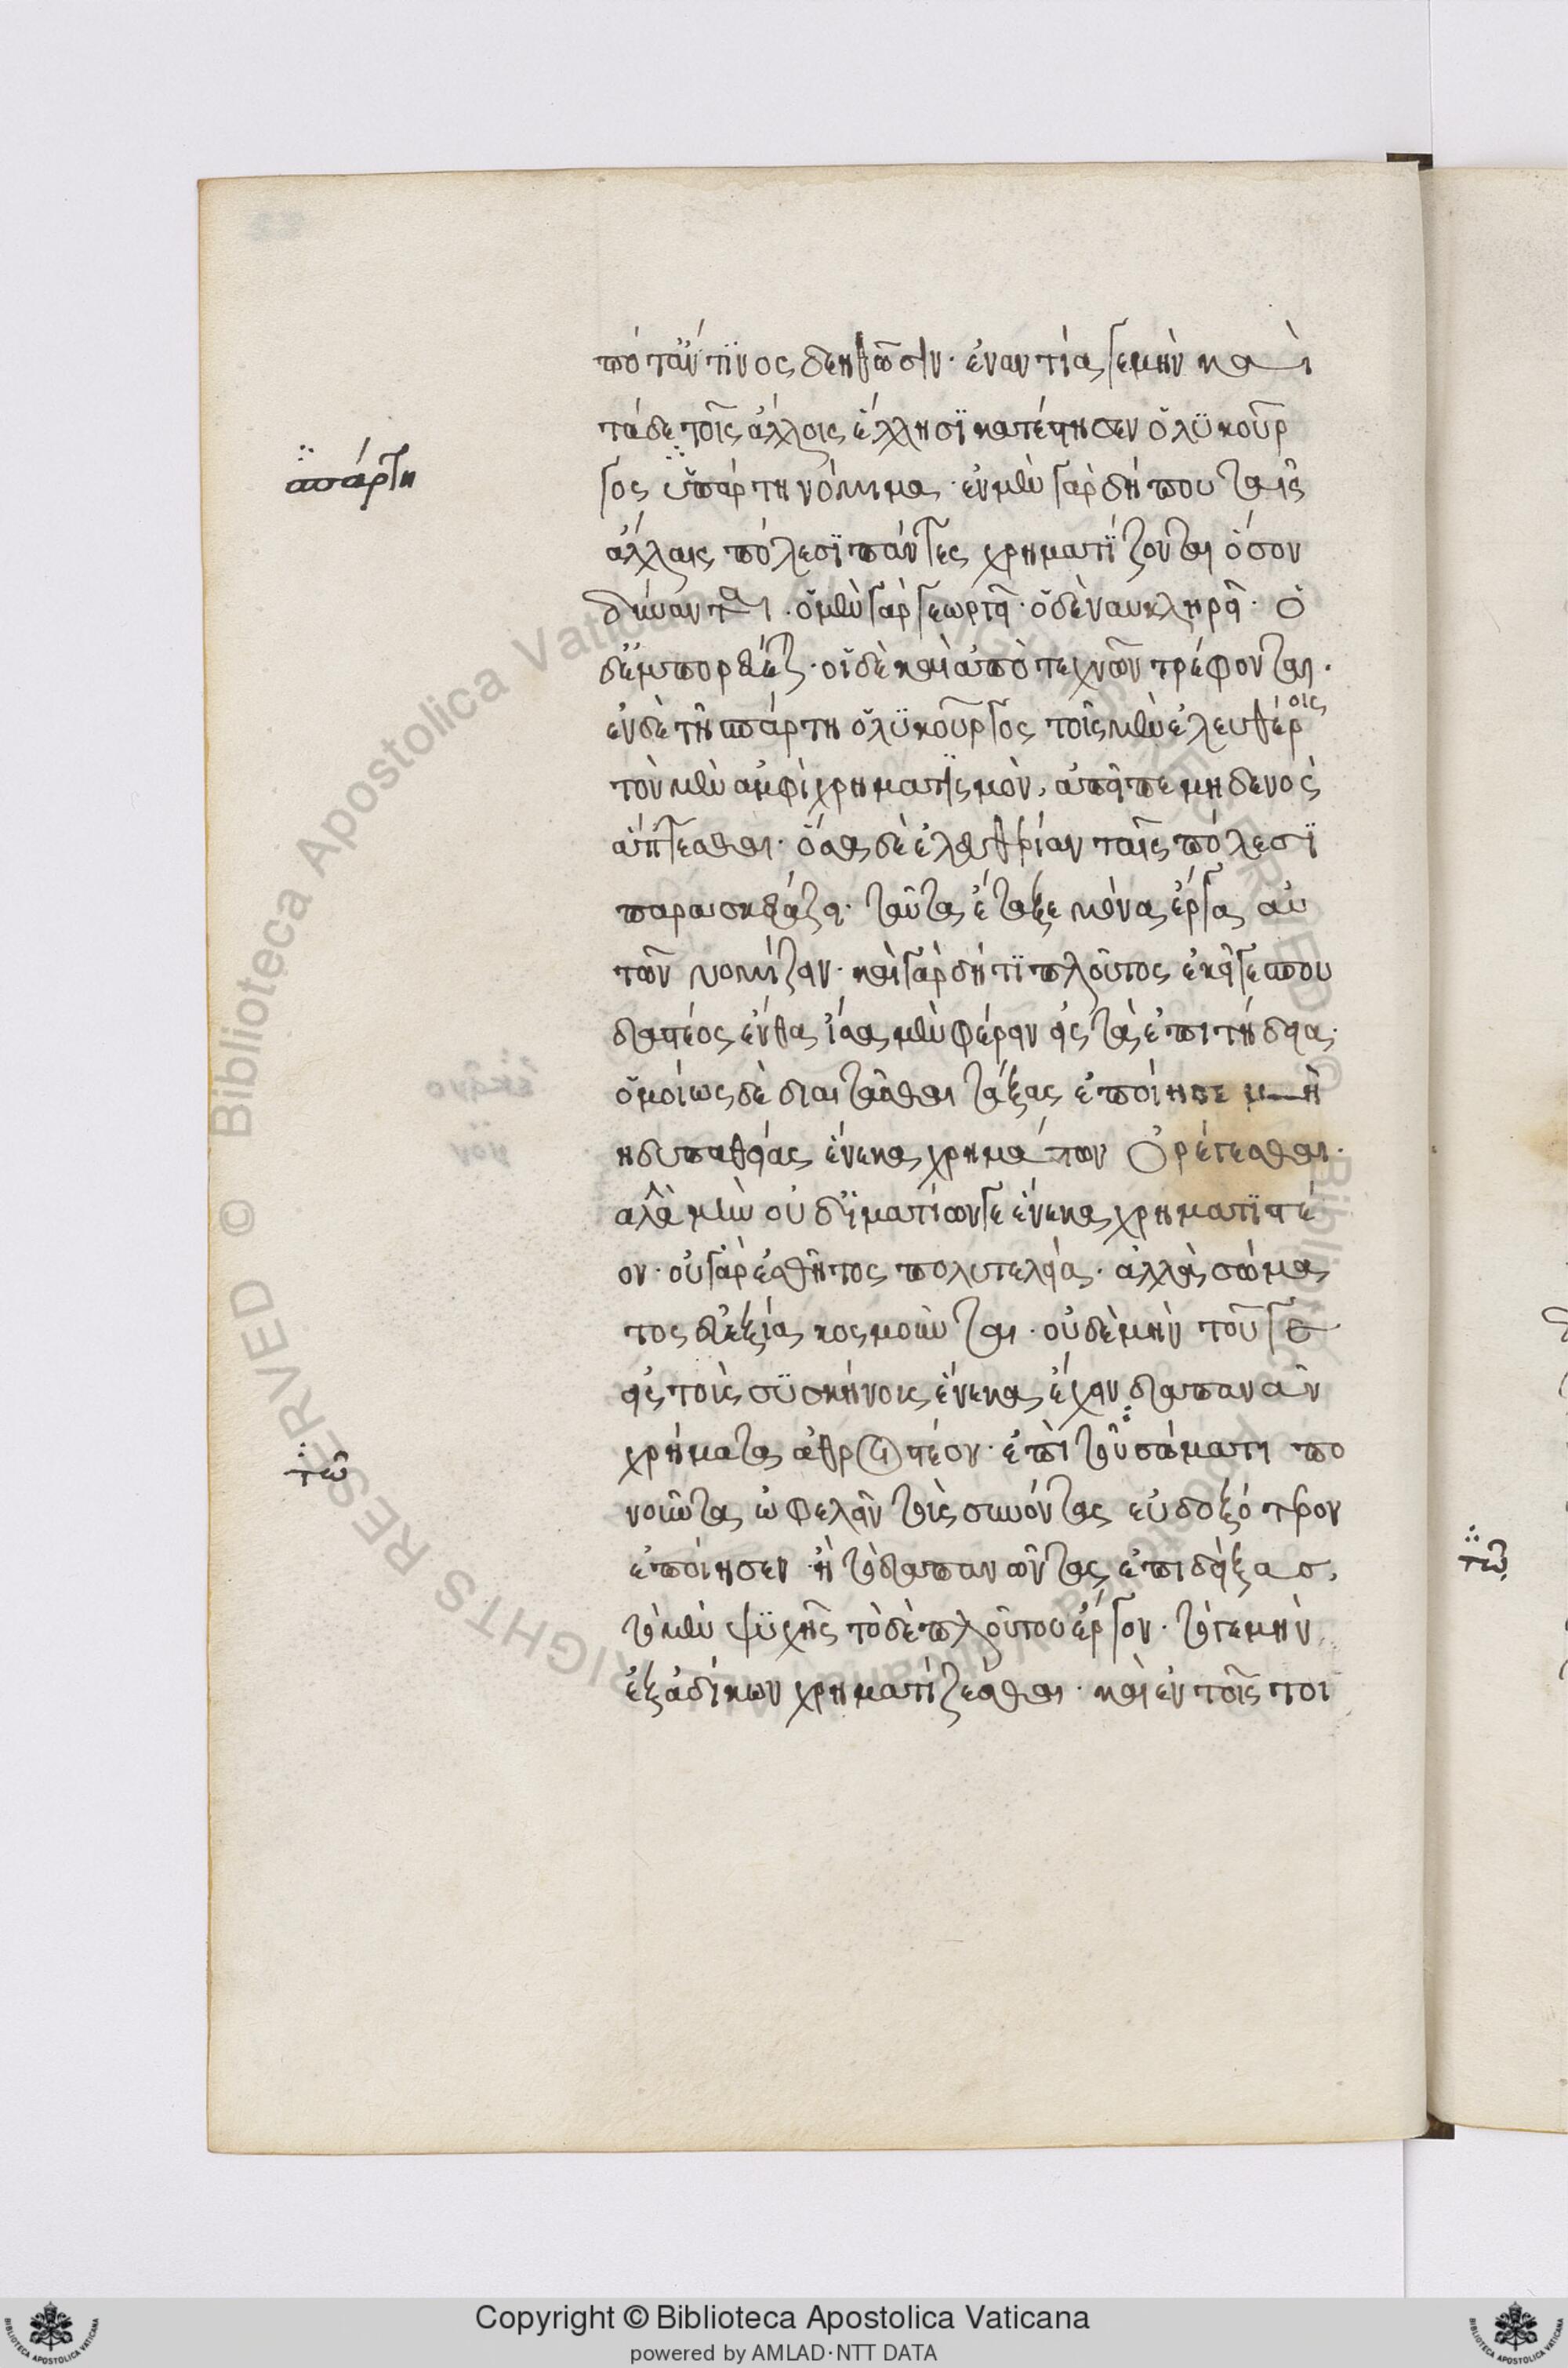 πόταν τϊνος δεηθῶσιν· ἐναντία γεμὴν καὶ
τάδε τοῖς ἄλλοις ἕλλησϊ κατέστησεν ὁλϋκοῦρ
σπάρτη
γος ὑπάρτη νόμιμα· ἐνμὲν γὰρ δήπου ταῖς
ἄλλαις πόλεσϊ πάντες χρηματϊζονται ὅσον
δύνανται· ὁμὲν γὰρ γεωργεῖ· ὁδὲ ναυκληρεῖ· ὁ
δἐμπορεύεται· οἱδὲ καὶ ἀπὸ τεχνῶν τρέφονται·
ἐνδὲ τῆ σπάρτη ὁλϋκοῦργος τοῖς μὲν ἐλευθέροις
τὸν μὲν ἀμφὶ χρηματϊσμὸν, ἀπεῖπε μηδενὸς
ἅπτεσθαι· ὅσα δὲ ἐλευθερίαν ταῖς πόλεσϊ
παρασκευάζει· ταῦτα ἔταξε μόνα ἔργα αὐ
τῶν νομίζειν· καὶ γὰρ δή τϊ πλοῦτος ἐκεῖγε σπου
δαστέος ἔνθα ἴσα μὲν φέρειν εἰς τὰ ἐπιτήδεια·
ὁμοίως δὲ διαιτᾶσθαι τάξας ἐποίησε μὴ
ἡδυπαθείας ἕνεκα χρημάτων ὀρέγεσθαι·
ἀλὰ μὴν οὐδϊματίωνγε ἕνεκα χρηματϊστέ
ον· οὐγὰρ ἐσθῆτος πολυτελείᾳ· ἀλλὰ σώμα
τος εὐεξίᾳ κοσμοῦνται· οὐδὲ μὴν τοῦγε
εἰς τοὺς σϋσκήνους ἕνεκα ἔχειν δαπανᾶν
χρήματα ἀθροιστέον· ἐπὶ τοῦ σώματι πο
τῶ
νοῦντα ὠφελεῖν τοὺς συνόντας εὐδοξότερον
ἐποίησεν ἢ τὸ δαπανῶντας ἐπιδείξας,
τὸ μὲν ψϋχῆς τὸ δὲ πλούτου ἔργον· τόγεμὴν
ἐξ ἀδίκων χρηματίζεσθαι· καὶ ἐν τοῖς τοι
τῶ
Copyright © Biblioteca Apostolica Vaticana
powered by AMLAD·NTT DATA